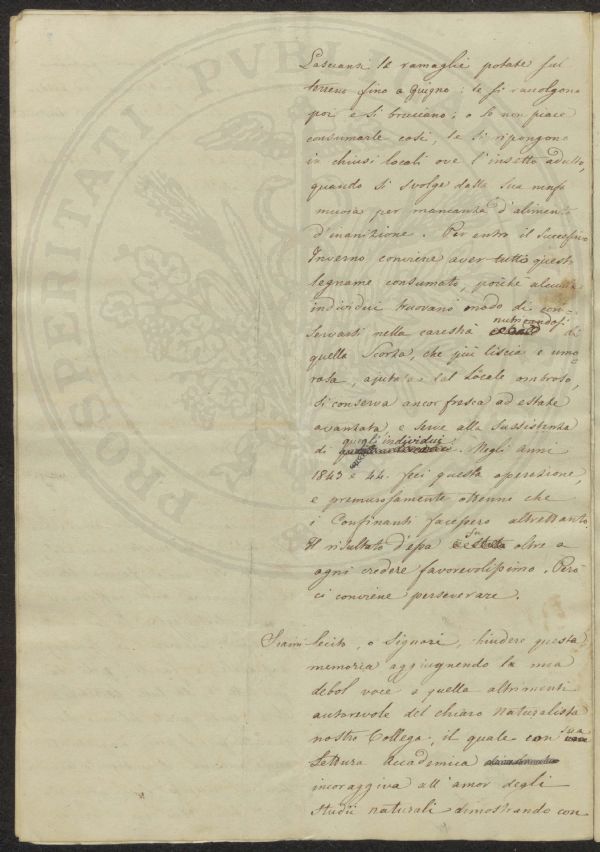 Lasciansi le ramaglie potate sul
terreno fino a Giugno: le si raccolgono
poi e si bruciano; o se non piace
consumarle così, le si ripongono
in chiusi locali ove l'insetto adulto,
quando si svolge dalla sua ninfa
muoia per mancanza d'alimento
d'inanizione. Per entro il successivo
Inverno conviene aver tutto questo
legname consumato, poichè alcuni
individui trovano modo di con-
servarsi nella carestia nutricandosi di
quella Scorza, che più liscia e umo-
rosa, ajutata dal Locale ombroso,
si conserva ancor fresca ad estate
avanzata e serve alla sussistenza
di quegli individui. Negli anni
1843 e 44. feci questa operazione,
e premurosamente ottenne che
i Confinanti facessero altrettanto.
Il risultato d'essa fu oltre a
ogni credere favorevolissimo. Però
ci conviene perseverare.
Siami lecito, o Signori, chiudere questa
memoria aggiugnendo la mia
debol voce a quella altrimenti
autorevole del chiaro naturalista
nostro Collega, il quale con sua
Lettura Accademica
incoraggiva all'amor degli
studii naturali dimostrando con
PROSPERITATI PVBLICAE